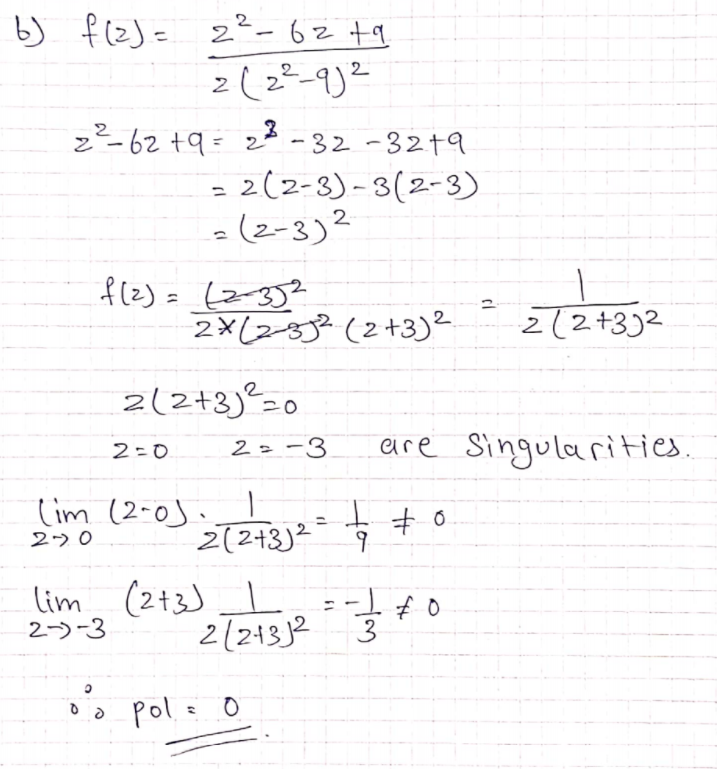 b) f(z) = z² - 6z + 9 / z(z² - 9)²
z² - 6z + 9 = z² - 3z - 3z + 9
= z(z-3) - 3(z-3)
= (z-3)²
f(z) = (z-3)² / z × (z-3)² (z+3)² = 1 / z(z+3)²
z(z+3)² = 0
z = 0 z = -3 are Singularities.
lim z→0 (z-0) · 1 / z(z+3)² = 1/9 ≠ 0
lim z→-3 (z+3) 1 / z(z+3)² = -1/3 ≠ 0
∴ pol = 0